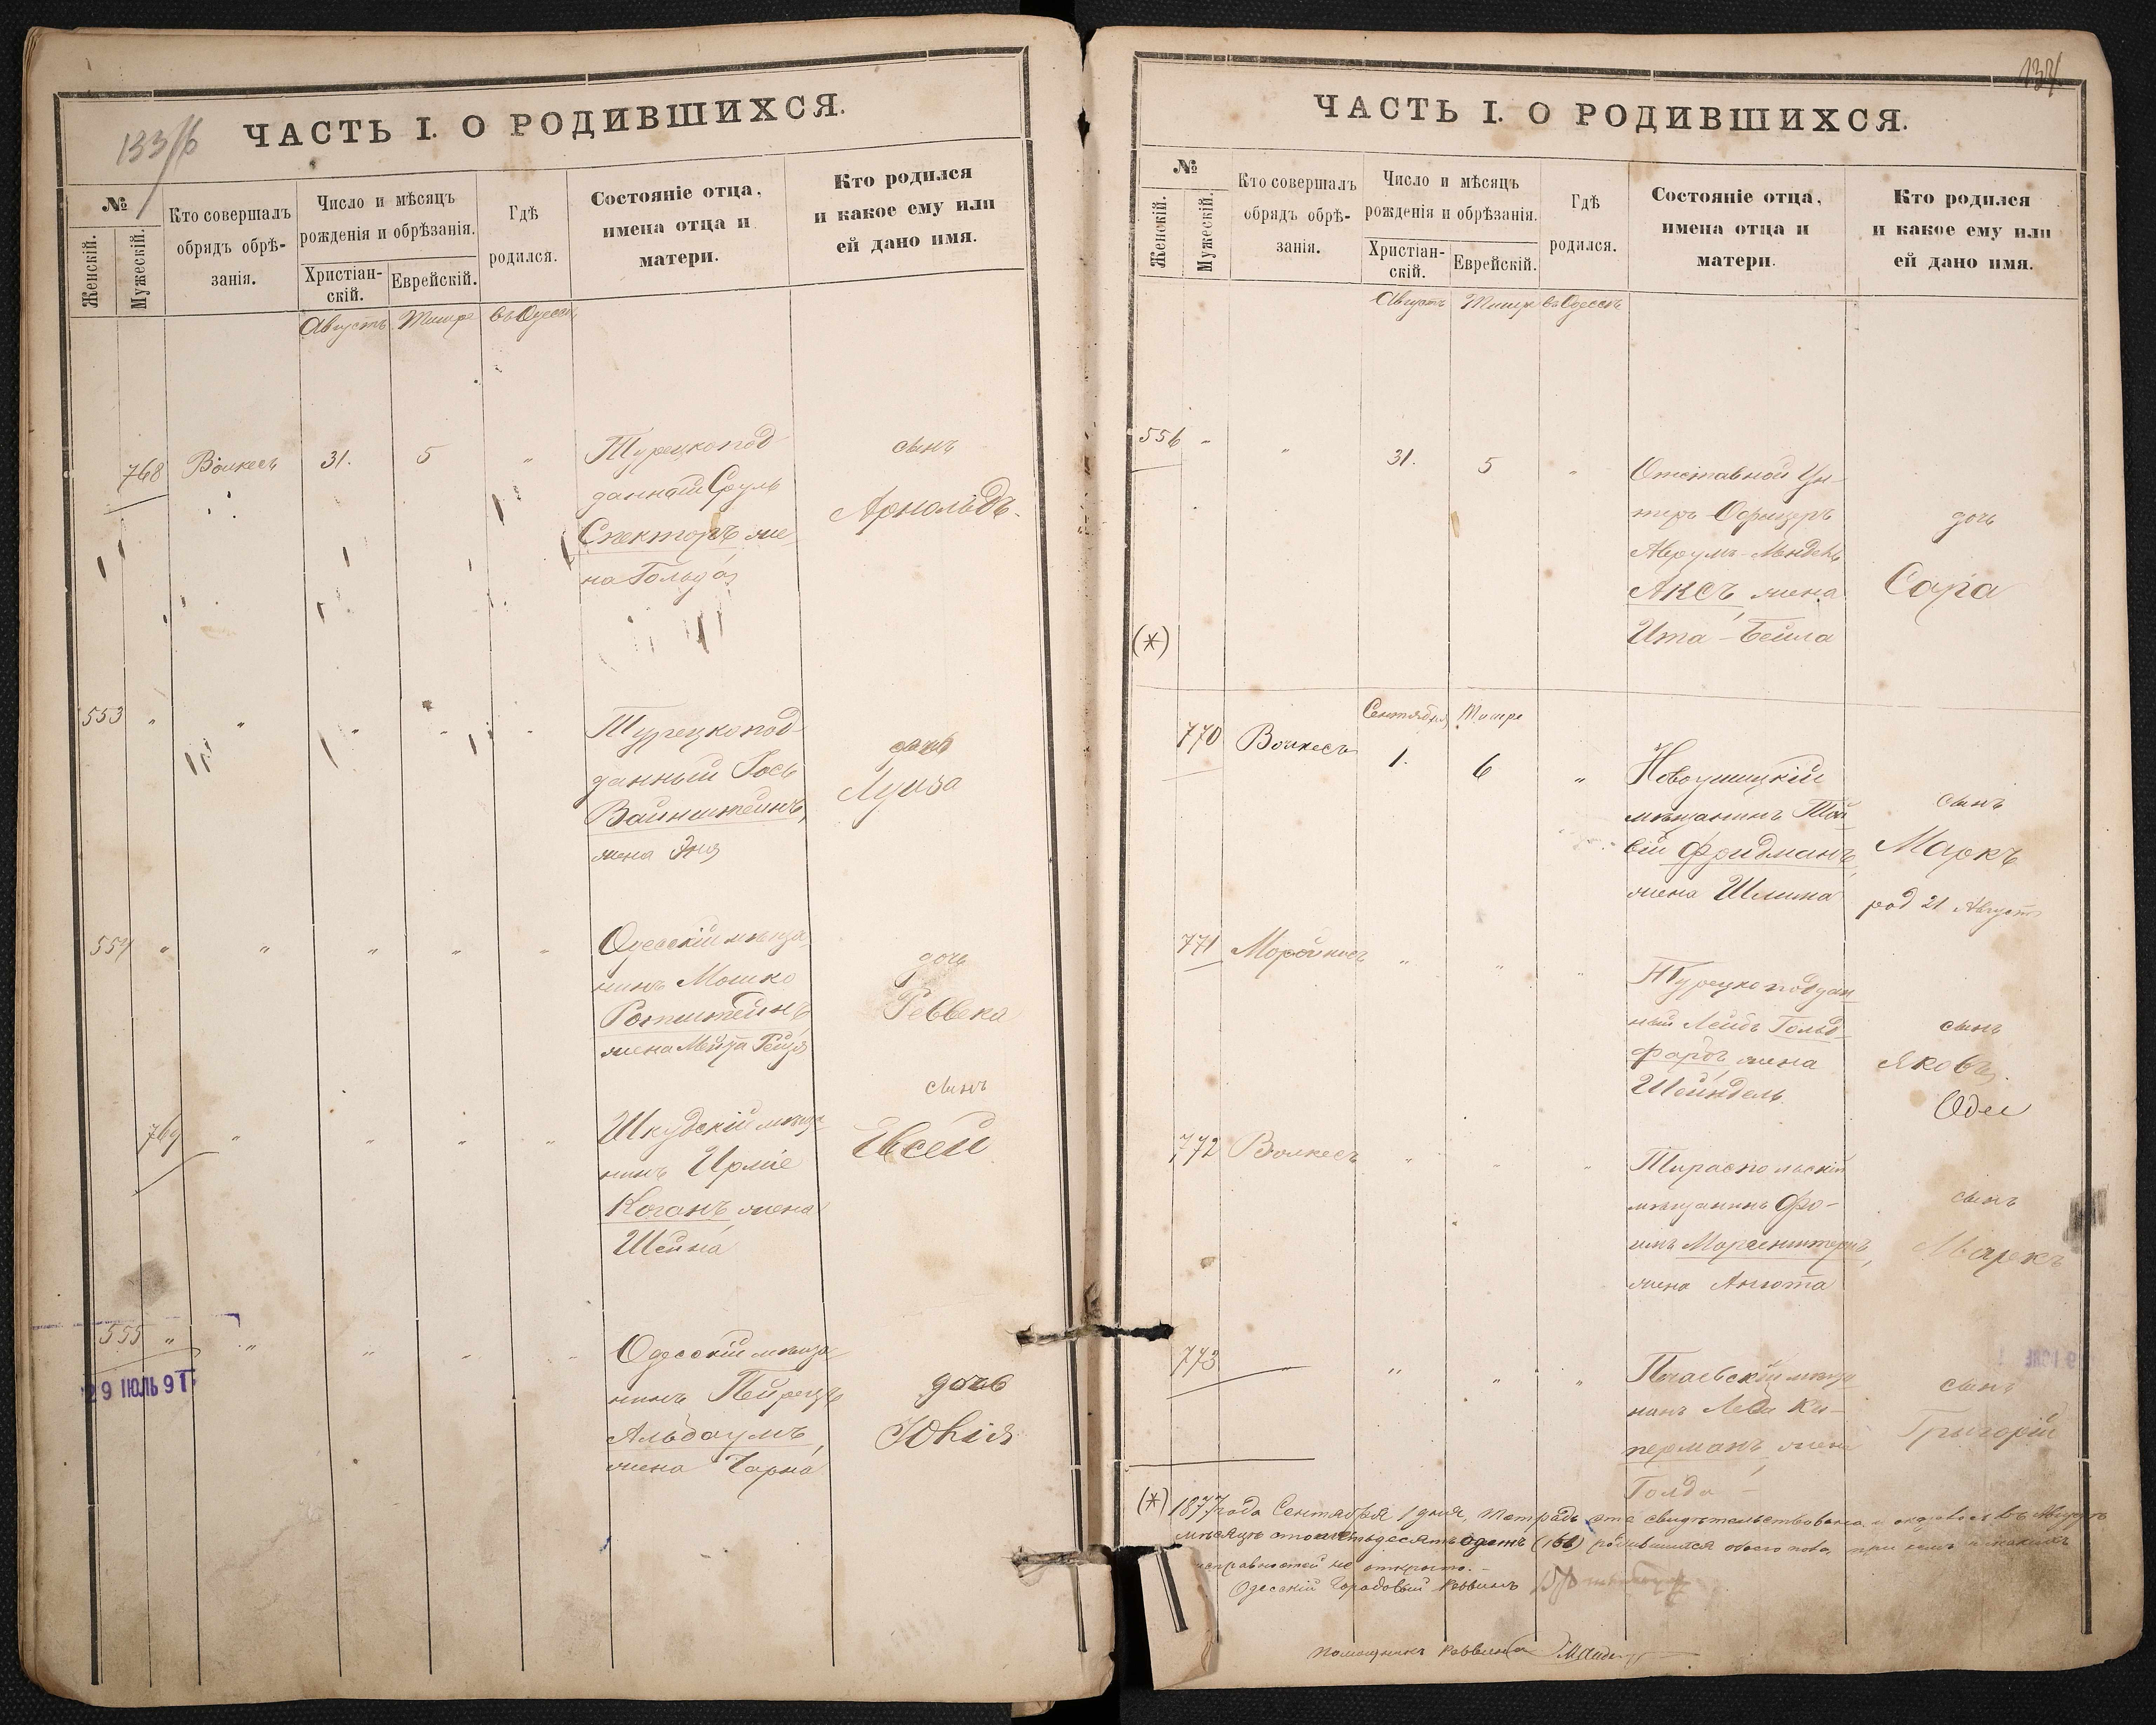 133/б
ЧАСТЬ I. О РОДИВШИХСЯ.
№
Женскій.
Мужескій.
Кто совершалъ
обрядъ обрѣ-
занія.
Число и мѣсяцъ
рожденія и обрѣзанія.
Христіан-
скій.
Еврейскій.
Гдѣ
родился.
Состояніе отца,
имена отца и
матери.
Кто родился
и какое ему или
ей дано имя.
Августъ Тишре въ Одессѣ
768 31. 5 "
Турецкопод
данный Сруль
Спекторъ же
на Гольда
сынъ
Арнольдъ.
553 " " " " "
Турецкопод-
данный Іось
Вайнштейнъ,
жена Эня
дочь
Луиза
554 " " " " "
Одесскій мѣща
нинъ Мошко
Ротштейнъ
жена
дочь
Реввека
769 " " " "
Шкудскій мѣща
нинъ
Коганъ жена
Шейна
сынъ
Евсей
555 " " " " "
29 ІЮЛЬ 91
Одесскій мѣща
нинъ Пейрецъ
Альбаумъ,
жена Чарна
дочь
Юлія
134
ЧАСТЬ I. О РОДИВШИХСЯ.
№
Женскій.
Мужескій.
Кто совершалъ
обрядъ обрѣ-
занія.
Число и мѣсяцъ
рожденія и обрѣзанія.
Христіан-
скій.
Еврейскій.
Гдѣ
родился.
Состояніе отца,
имена отца и
матери.
Кто родился
и какое ему или
ей дано имя.
Августъ Тишре въ Одессѣ
556 " " 31. 5 "
Отставной Ун-
теръ-Офицеръ
Аврумъ-Мендель
Аксъ жена
Ита-Бейла
дочь
Сара
(*)
Сентябрь Тишре
770 1. 6 "
Новоушицкій
мѣщанинъ Той
вій Фридманъ,
жена Шлима
сынъ
Маркъ
род 21 Августа
771 " " "
Турецкоподдан
ный Лейбъ Гольд-
фарбъ жена
Шейндель
сынъ
Яковъ.
772 " " "
Тираспольскій
мѣщанинъ Фро-
имъ Моргенштернъ,
жена Анюта
сынъ
Маркъ
773 " " " "
мѣща
нинъ Ки-
перманъ жена
Голда
сынъ
Григорій
(*) 1877 года Сентября 1 дня, тетрадь эта свидѣтельствована и оказалось въ Августѣ
мѣсяцѣ родившихся обоего пола, при чемъ никакихъ
неисправностей не открыто.-
Одесскій Городовой Раввинъ
Помощникъ Раввина